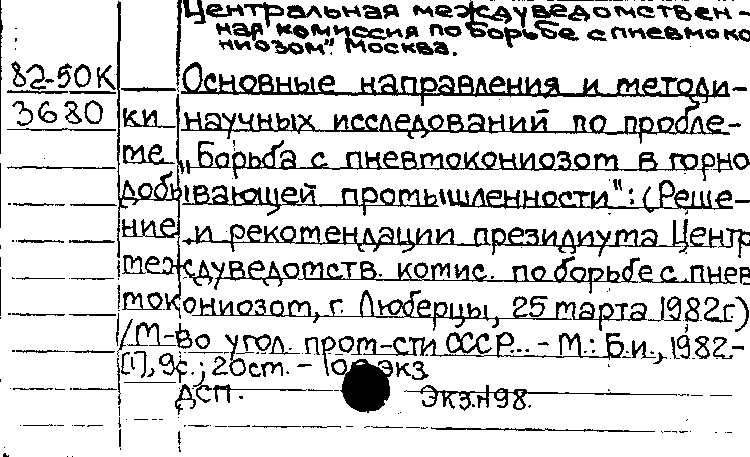 Центральная междуведомствен-
ная комиссия по борьбе с пневмоко
ниозом". Москва.
82-50К Основные направления и методи-
3680 ки научных исследований по пробле-
ме „Борьба с пневмокониозом в горно
добывающей промышленности": (Реше-
ние и рекомендации президиума Центр
междуведомств. комис. по борьбе с пнев
мокониозом, г. Люберцы, 25 марта 1982г.)
/М-во угол. пром-сти СССР... - М.: Б.и., 1982.-
[1], 9с.; 20см. - 100 экз
ДСП. Экз.№98.